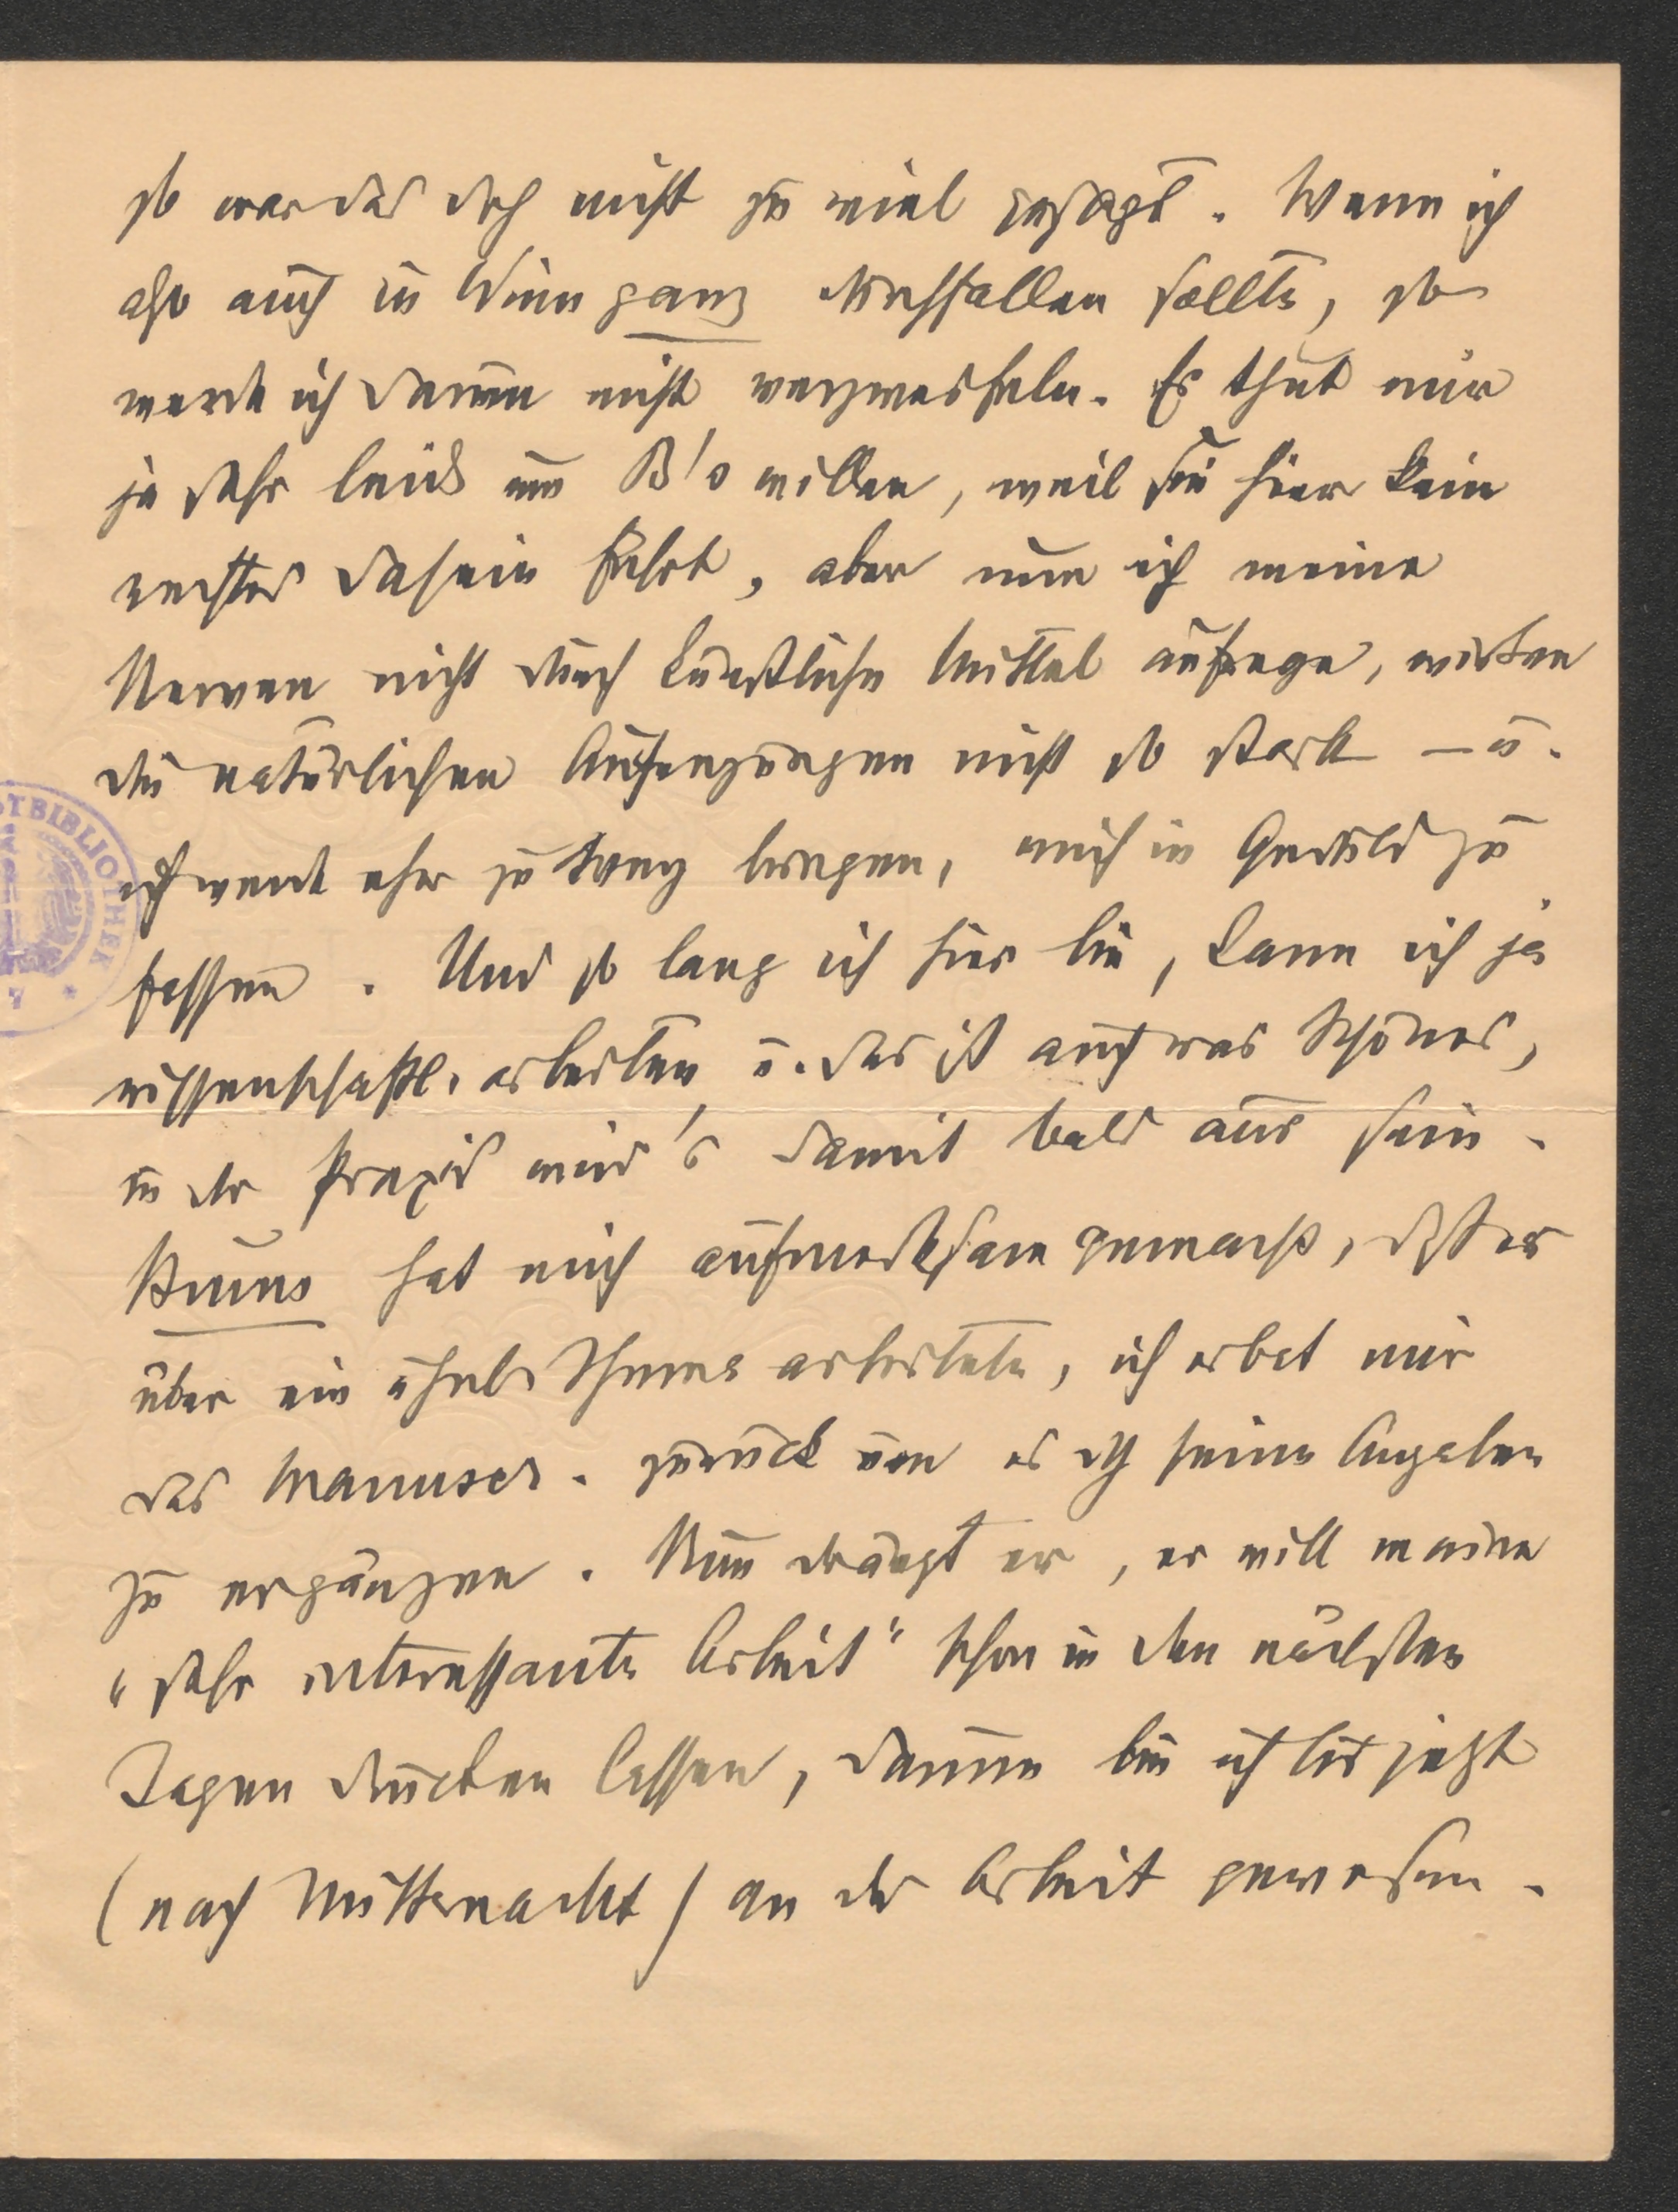 so war das doch nicht zu viel gesagt. Wenn ich
also auch in Wien ganz durchfallen sollte, so
werde ich darum nicht verzweifeln. Es thut mir
ja sehr leid um B's willen, weil sie hier kein
rechtes Dasein führt, aber nun ich meine
Nerven nicht durch künstliche Mittel aufrege, wirken
die natürlichen Aufregungen nicht so stark – u.
ich werde eher zu Weg bringen, mich in Geduld zu
fassen. Und so lang ich hier bin, kann ich ja
wissenschaftl. arbeiten u. das ist auch was Schönes,
in der Praxis wird's damit bald aus sein.
Bruns hat mich aufmerksam gemacht, dass er
über ein ähnl. Thema arbeitete, ich erbat mir
das Manuscr. zurück um es dch seine Angaben
zu ergänzen. Nun drängt er, er will meine
"sehr interessante Arbeit" schon in den nächsten
Tagen drucken lassen, darum bin ich bis jetzt
(nach Mitternacht) an der Arbeit gewesen.
TBIBLIOTHEK